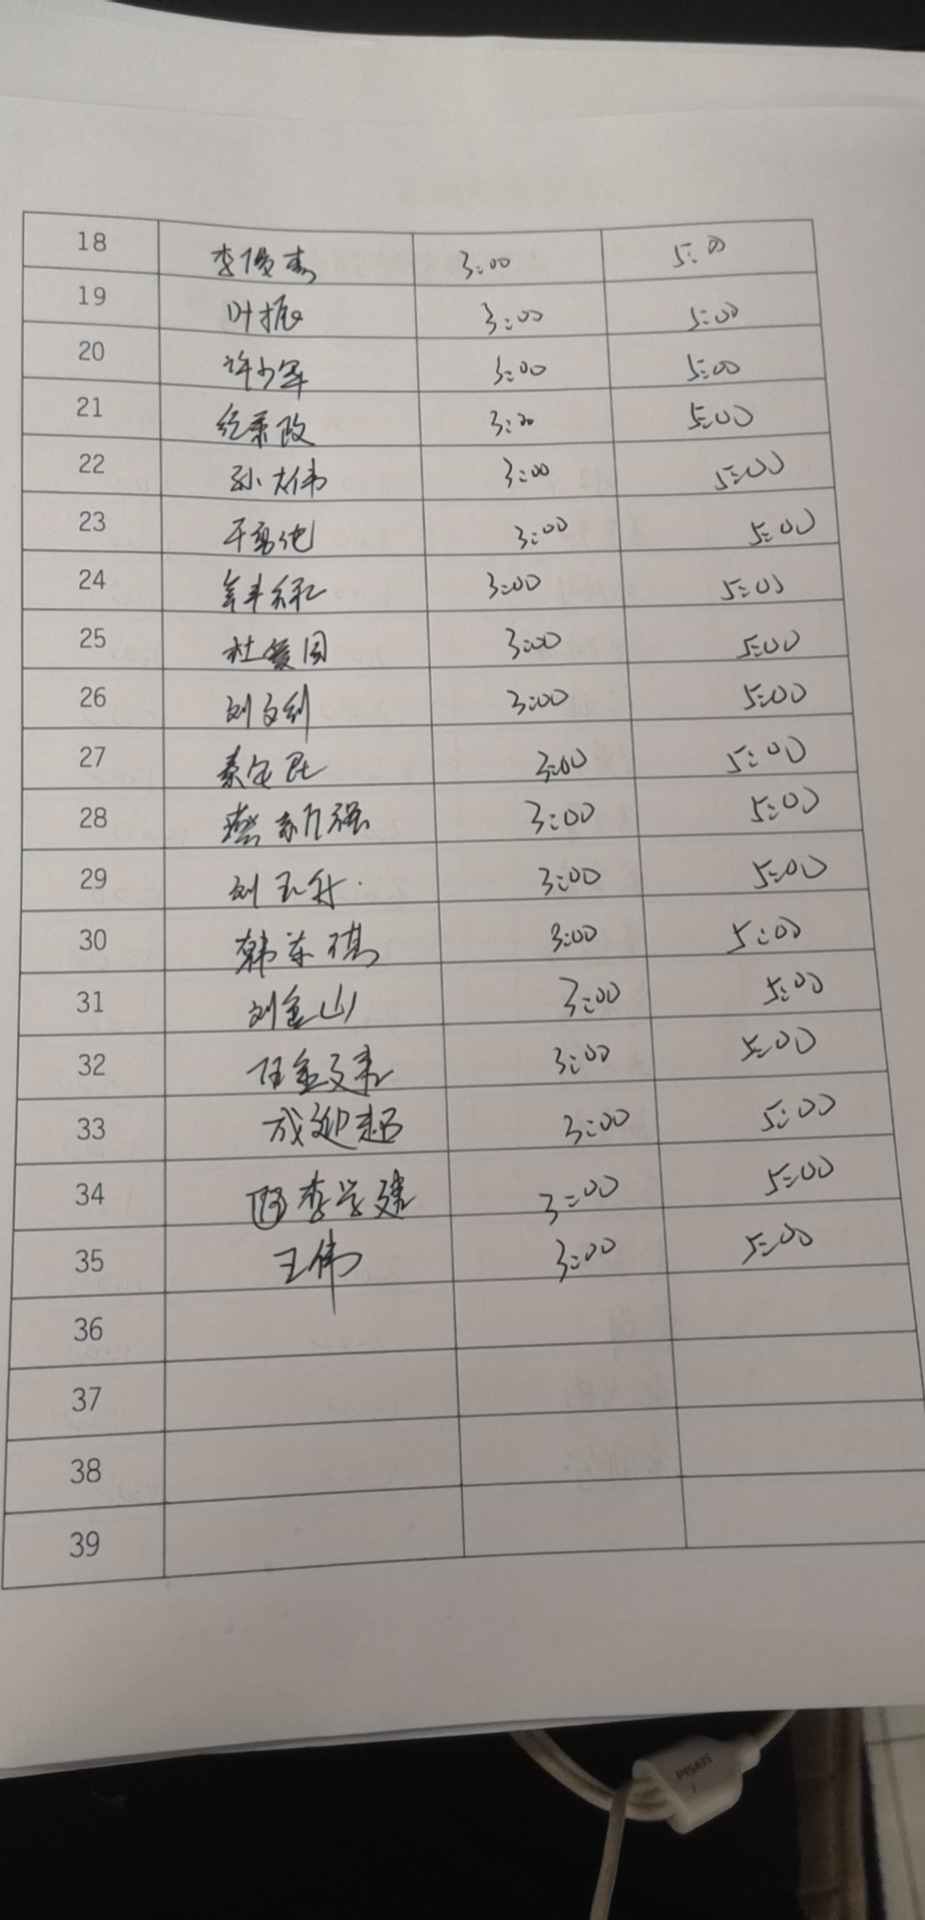 18 李俊杰 3:00 5:00
19 叶振 3:00 5:00
20 许少军 3:00 5:00
21 纪荣改 3:00 5:00
22 孙大伟 3:00 5:00
23 3:00 5:00
24 3:00 5:00
25 杜爱国 3:00 5:00
26 刘文利 3:00 5:00
27 3:00 5:00
28 新强 3:00 5:00
29 刘玉升 3:00 5:00
30 韩东祺 3:00 5:00
31 刘金山 3:00 5:00
32 任金 3:00 5:00
33 成迎超 3:00 5:00
34 李学建 3:00 5:00
35 王伟 3:00 5:00
36
37
38
39
PISEN